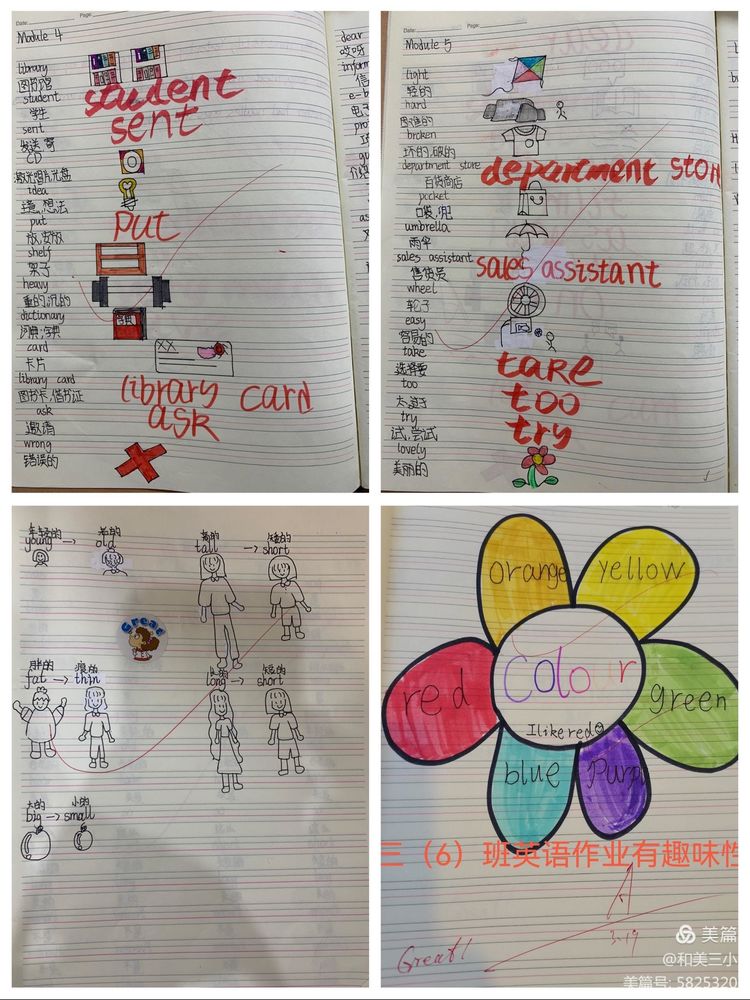 Date:
Page:
Module 4
library
图书馆
student
学生
sent
发送,寄
CD
激光唱片,光盘
idea
主意,想法
put
放,安放
shelf
架子
heavy
重的,沉的
dictionary
词典,字典
card
卡片
library card
图书卡,借书证
ask
邀请
wrong
错误的
student
sent
put
字典
XX
library card
ask
dear
哎呀
inform
信
e-b
电子
pro
Date:
Page:
Module 5
light
轻的
hard
困难的
broken
坏的,破的
department store
百货商店
pocket
口袋,兜
umbrella
雨伞
sales assistant
售货员
wheel
轮子
easy
容易的
take
选择,要
too
太,过于
try
试,尝试
lovely
美丽的
department stor
sales assistant
take
too
try
年轻的 老的
young → old
高的 矮的
tall → short
Great
胖的 瘦的
fat → thin
长的 短的
long → short
大的 小的
big → small
orange
yellow
red
Colour
green
I like red
blue
Purpl
三（6）班英语作业有趣味性
A
3.19
Great!
美篇
@和美三小
美篇号: 5825320